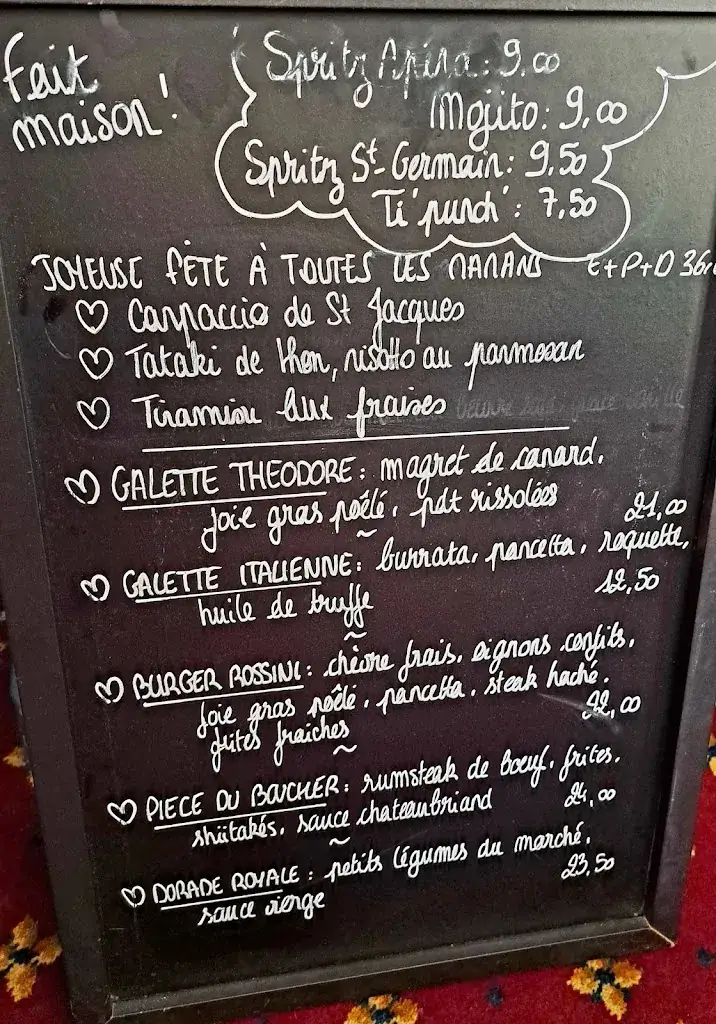 Fait
maison!
Spritz Apéro: 9.00
Mojito: 9,00
Spritz St-Germain: 9.50
Ti'punch': 7,50
JOYEUSE FÊTE À TOUTES LES MAMANS E+P+D 36,
♡ Carpaccio de St Jacques
♡ Tataki de thon, risotto au parmesan
♡ Tiramisu aux fraises
♡ GALETTE THEODORE: magret de canard,
foie gras poêlé, pdt rissolées 21,00
~
♡ GALETTE ITALIENNE: burrata, pancetta, roquette,
huile de truffe 12,50
~
♡ BURGER ROSSINI: chèvre frais, oignons confits,
foie gras poêlé, pancetta, steak haché,
frites fraîches 22,00
~
♡ PIECE DU BOUCHER: rumsteak de boeuf, frites,
shiitakés, sauce chateaubriand 24,00
~
♡ DORADE ROYALE: petits légumes du marché,
sauce vierge 23,50